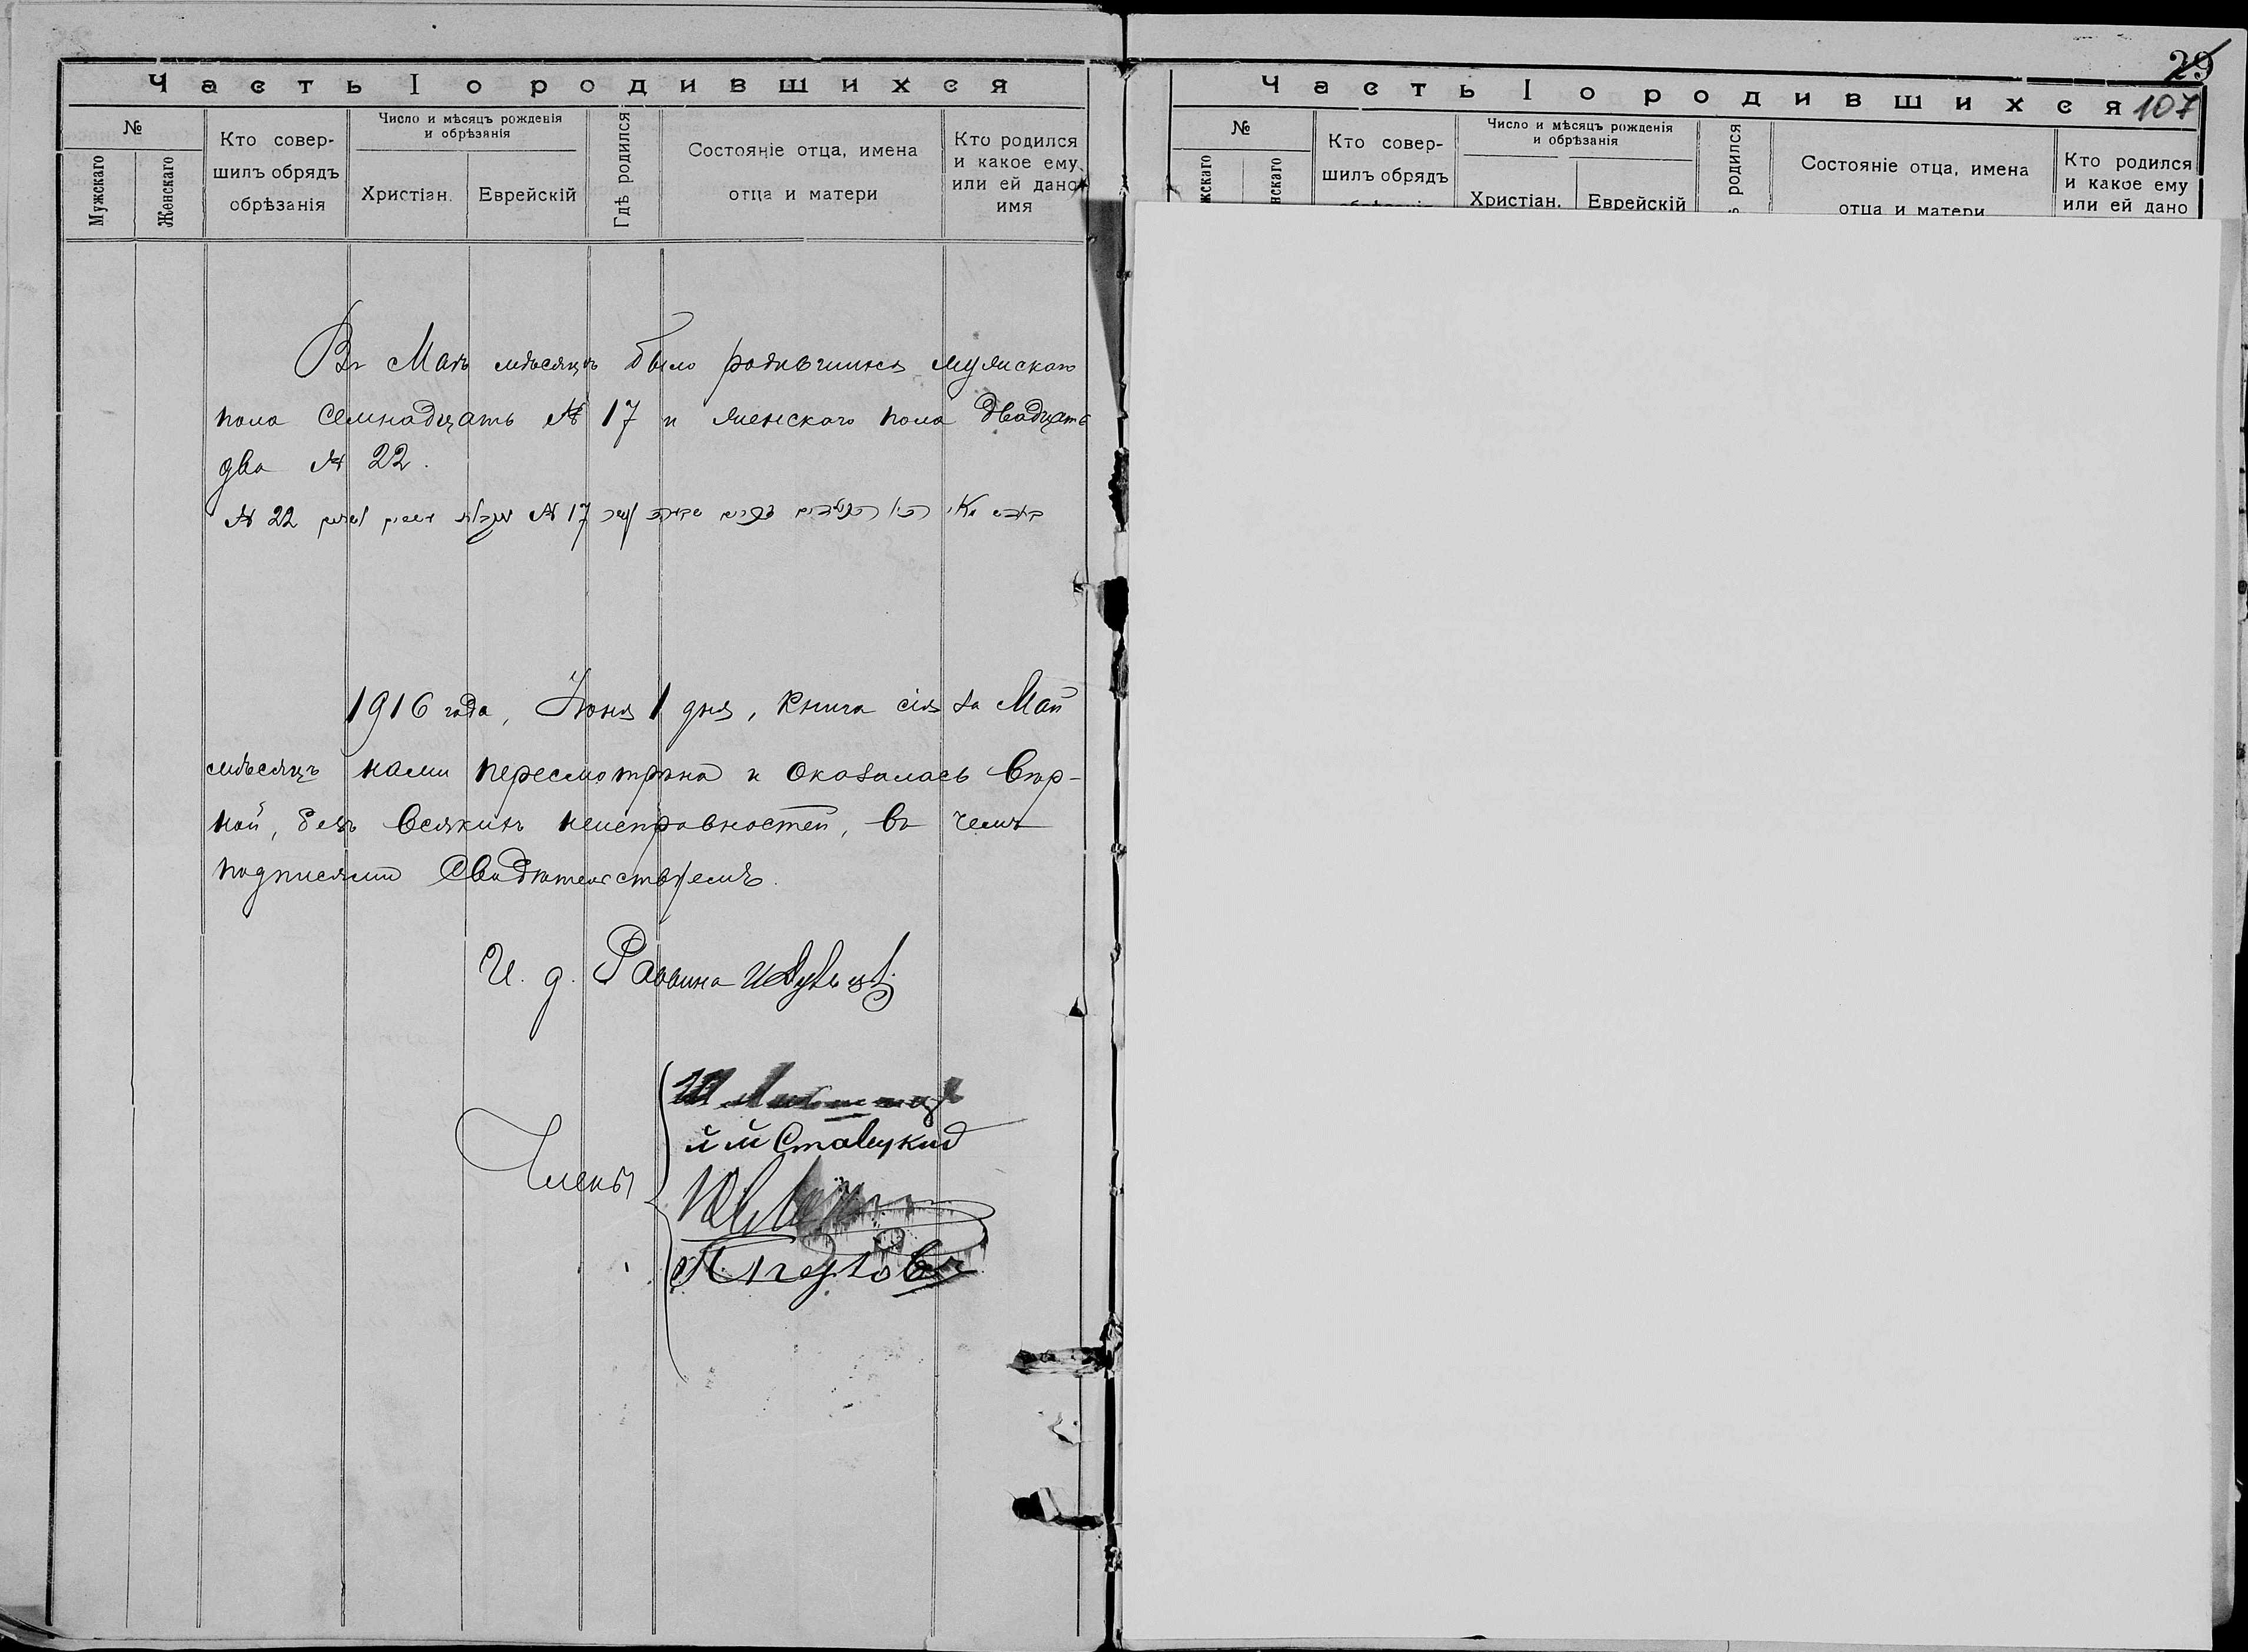 Часть I о родившихся
№
Мужскаго
Женскаго
Кто совер-
шилъ обрядъ
обрѣзанія
Число и мѣсяцъ рожденія
и обрѣзанія
Христіан.
Еврейскій
Гдѣ родился
Состояніе отца, имена
отца и матери
Кто родился
и какое ему
или ей дано
имя
Въ Маѣ мѣсяцѣ было родившихся мужскаго
пола Семнадцать № 17 и женскаго пола двадцать
два № 22.
№ 17 № 22
1916 года, Іюня 1 дня, книга сія за Май
мѣсяцъ нами пересмотрѣна и оказалась вѣр-
ной, безъ всякихъ неисправностей, въ чемъ
подписями Свидѣтельствуемъ.
И. д. Раввина
Члены
Ставицкій
29
107
Часть I о родившихся
№
жскаго
нскаго
Кто совер-
шилъ обрядъ
Число и мѣсяцъ рожденія
и обрѣзанія
Христіан.
Еврейскій
ѣ родился
Состояніе отца, имена
отца и матери
Кто родился
и какое ему
или ей дано